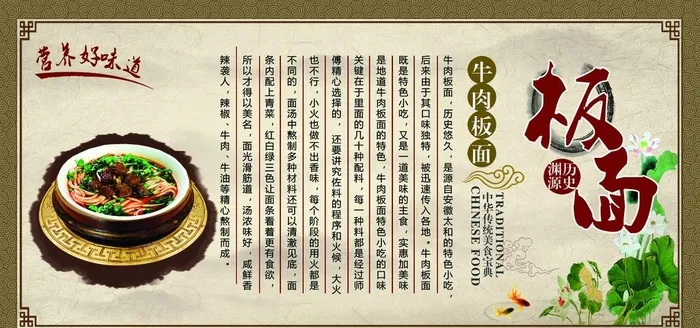 板面
历史
渊源
牛肉板面
TRADITIONAL
CHINESE FOOD
中华传统美食宝典
牛肉板面，历史悠久，是源自安徽太和的特色小吃，
后来由于其口味独特，被迅速传入各地。牛肉板面
既是特色小吃，又是一道美味的主食，实惠加美味
是地道牛肉板面的特色，牛肉板面特色小吃的口味
关键在于里面的几十种配料，每一种料都是经过师
傅精心选择的，还要讲究佐料的程序和火候，大火
也不行，小火也做不出香味，每个阶段的用火都是
不同的，面汤中熬制多种材料还可以清澈见底，面
条内配上青菜，红白绿三色让面条看着更有食欲，
所以才得以美名，面光滑筋道，汤浓味好，咸鲜香
辣袭人，辣椒、牛肉、牛油等精心熬制而成。
营养好味道